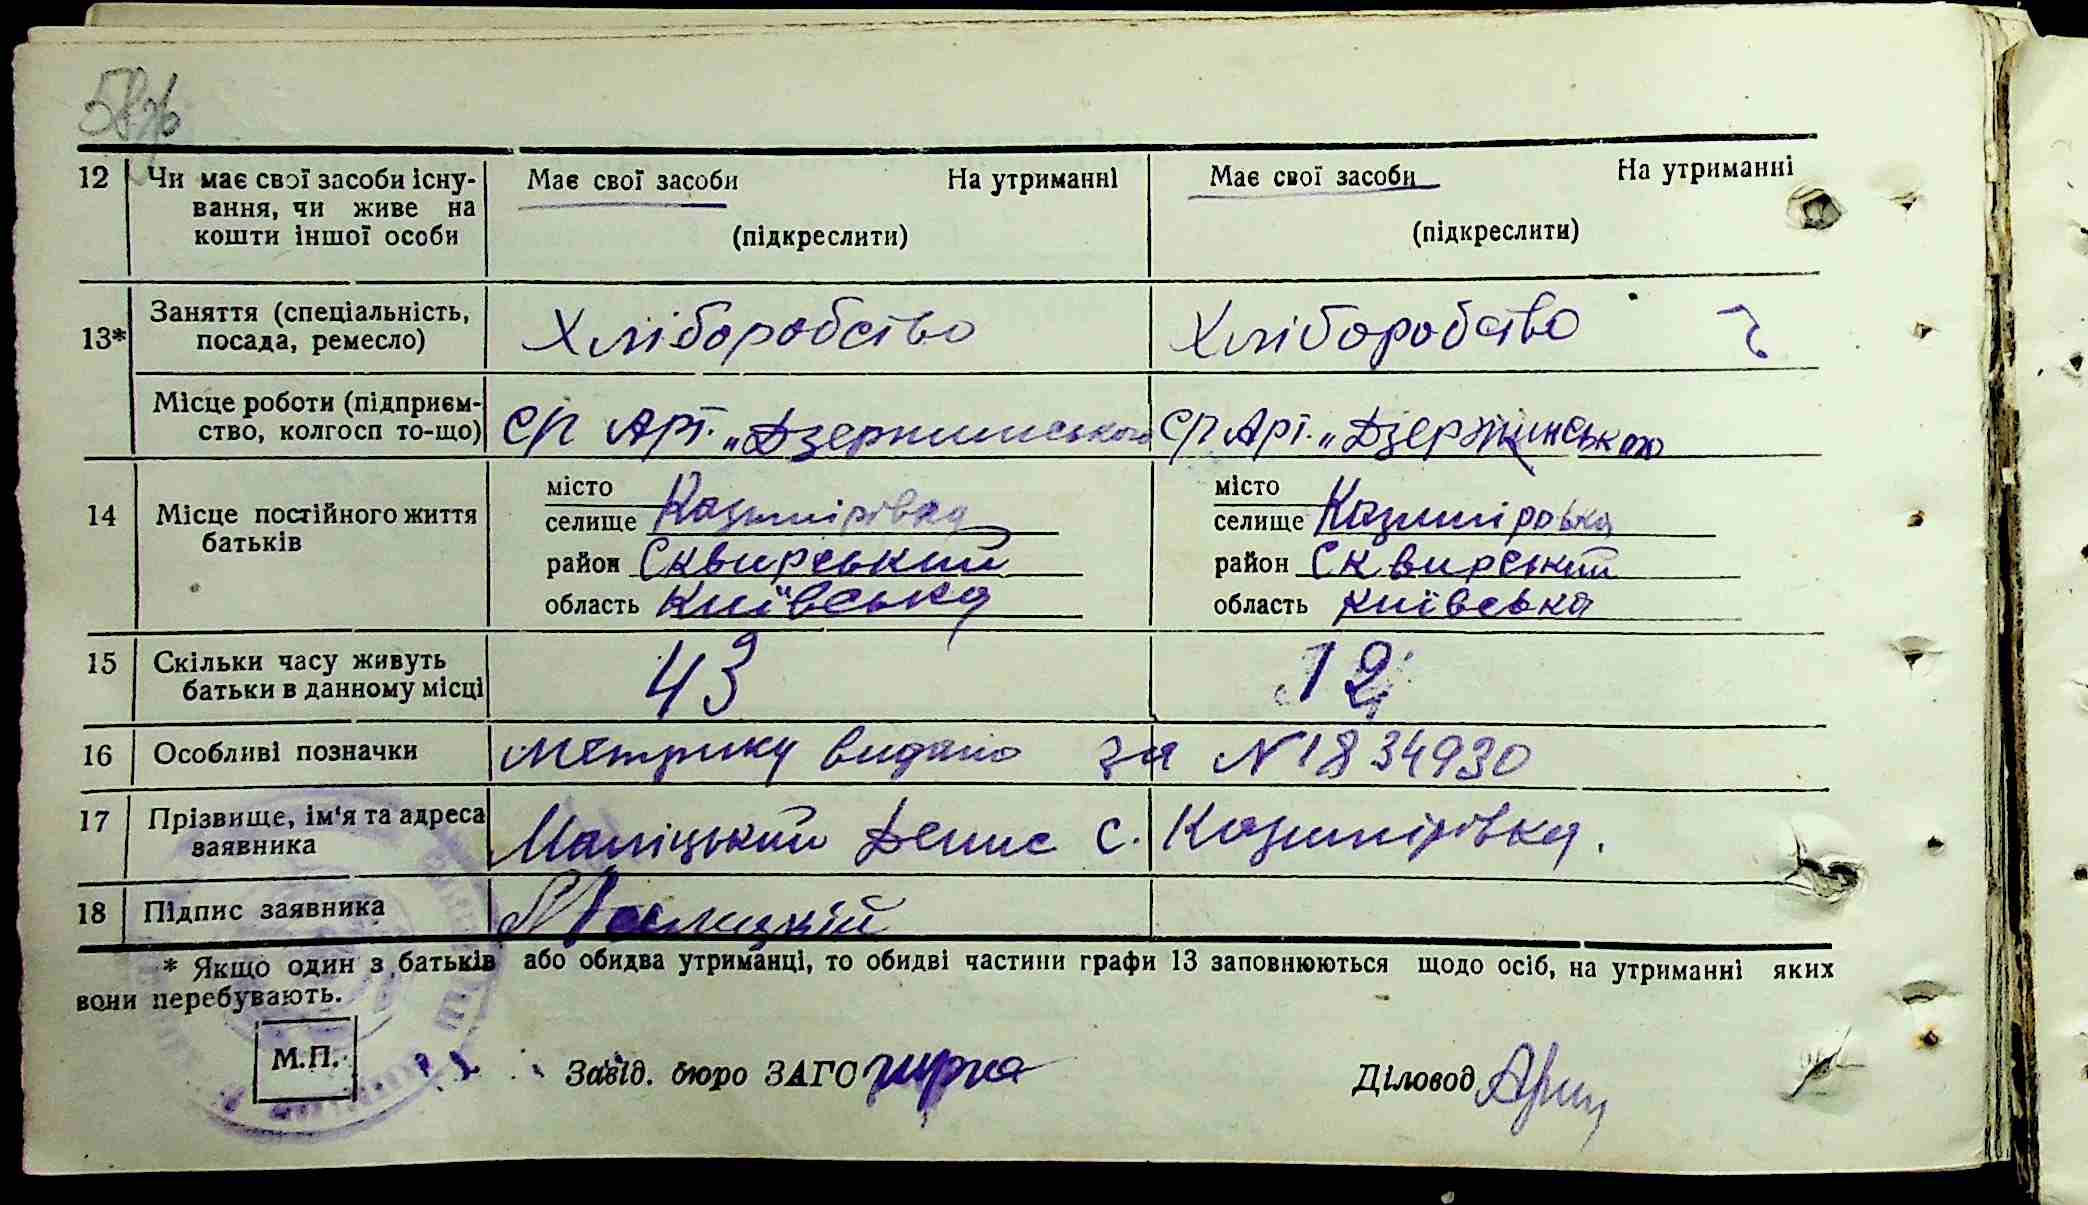 58
12 Чи має свої засоби існу- Має свої засоби На утриманні Має свої засоби На утриманні
вання, чи живе на
кошти іншої особи (підкреслити) (підкреслити)
13* Заняття (спеціальність, Хліборобство Хліборобство
посада, ремесло)
Місце роботи (підприєм- с/г Арт. „Дзержинського с/г Арт. „Дзержинського
ство, колгосп то-що)
14 Місце постійного життя батьків
місто місто
селище Казимірівка селище Казиміровка
район Сквирський район Сквирський
область Київська область Київська
15 Скільки часу живуть 43 12
батьки в данному місці
16 Особливі позначки Метрику видано за N 1834930
17 Прізвище, ім'я та адреса Маліцький Денис с. Казимірівка.
заявника
18 Підпис заявника Малицкій
* Якщо один з батьків або обидва утриманці, то обидві частини графи 13 заповнюються щодо осіб, на утриманні яких
вони перебувають.
М.П. Завід. бюро ЗАГС Діловод